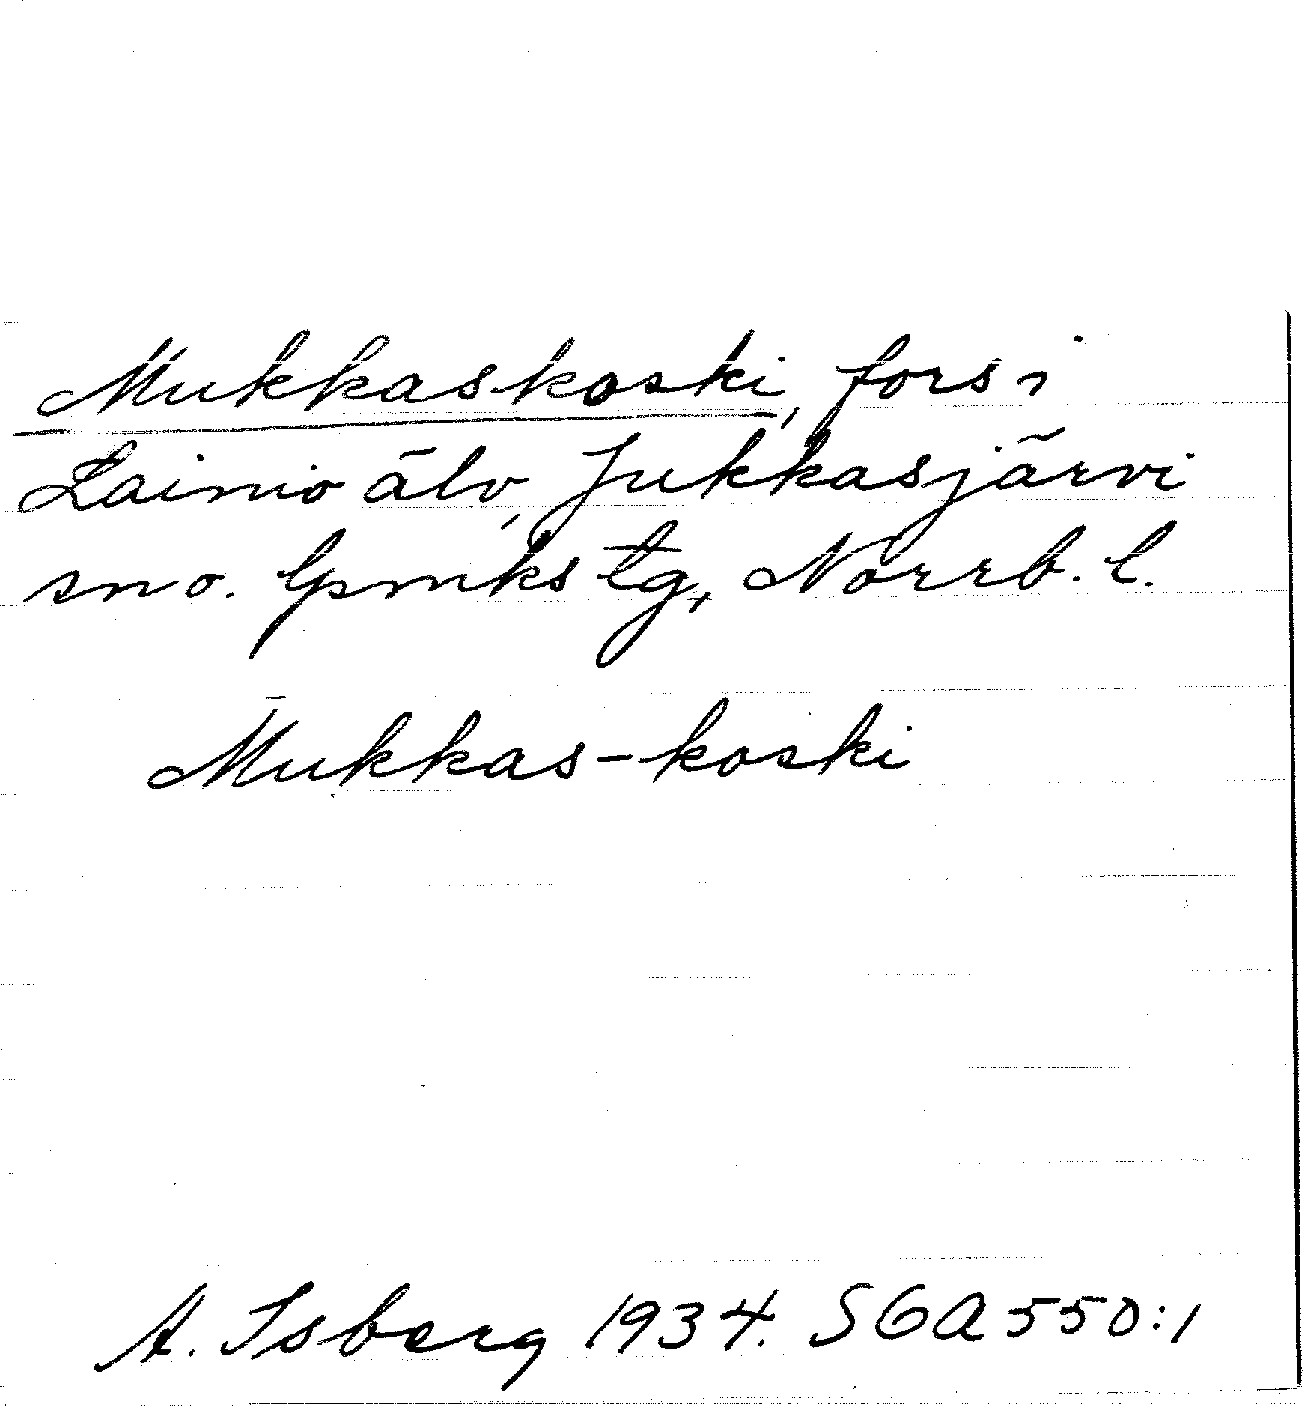 Mukkaskoski, fors i
Lainio älv, Jukkasjärvi
sn o. lpmks tg, Norrb. l.
Mukkas-koski
A. Isberg 1934. SGA 550:1